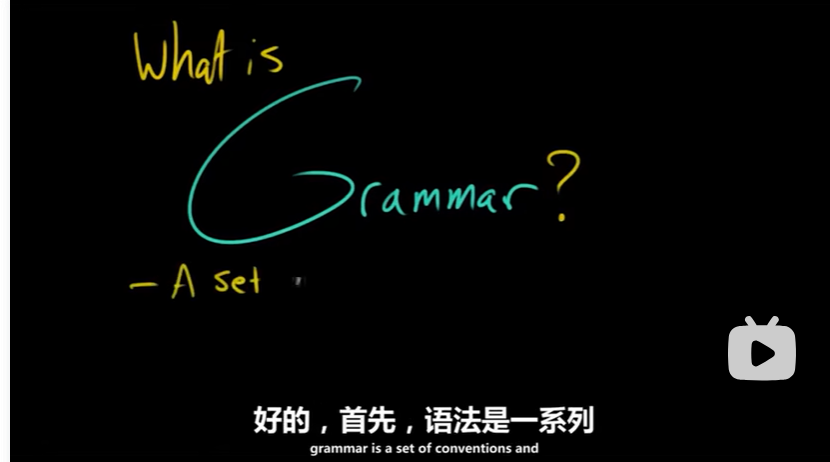 What is
Grammar?
- A set
好的，首先，语法是一系列
grammar is a set of conventions and